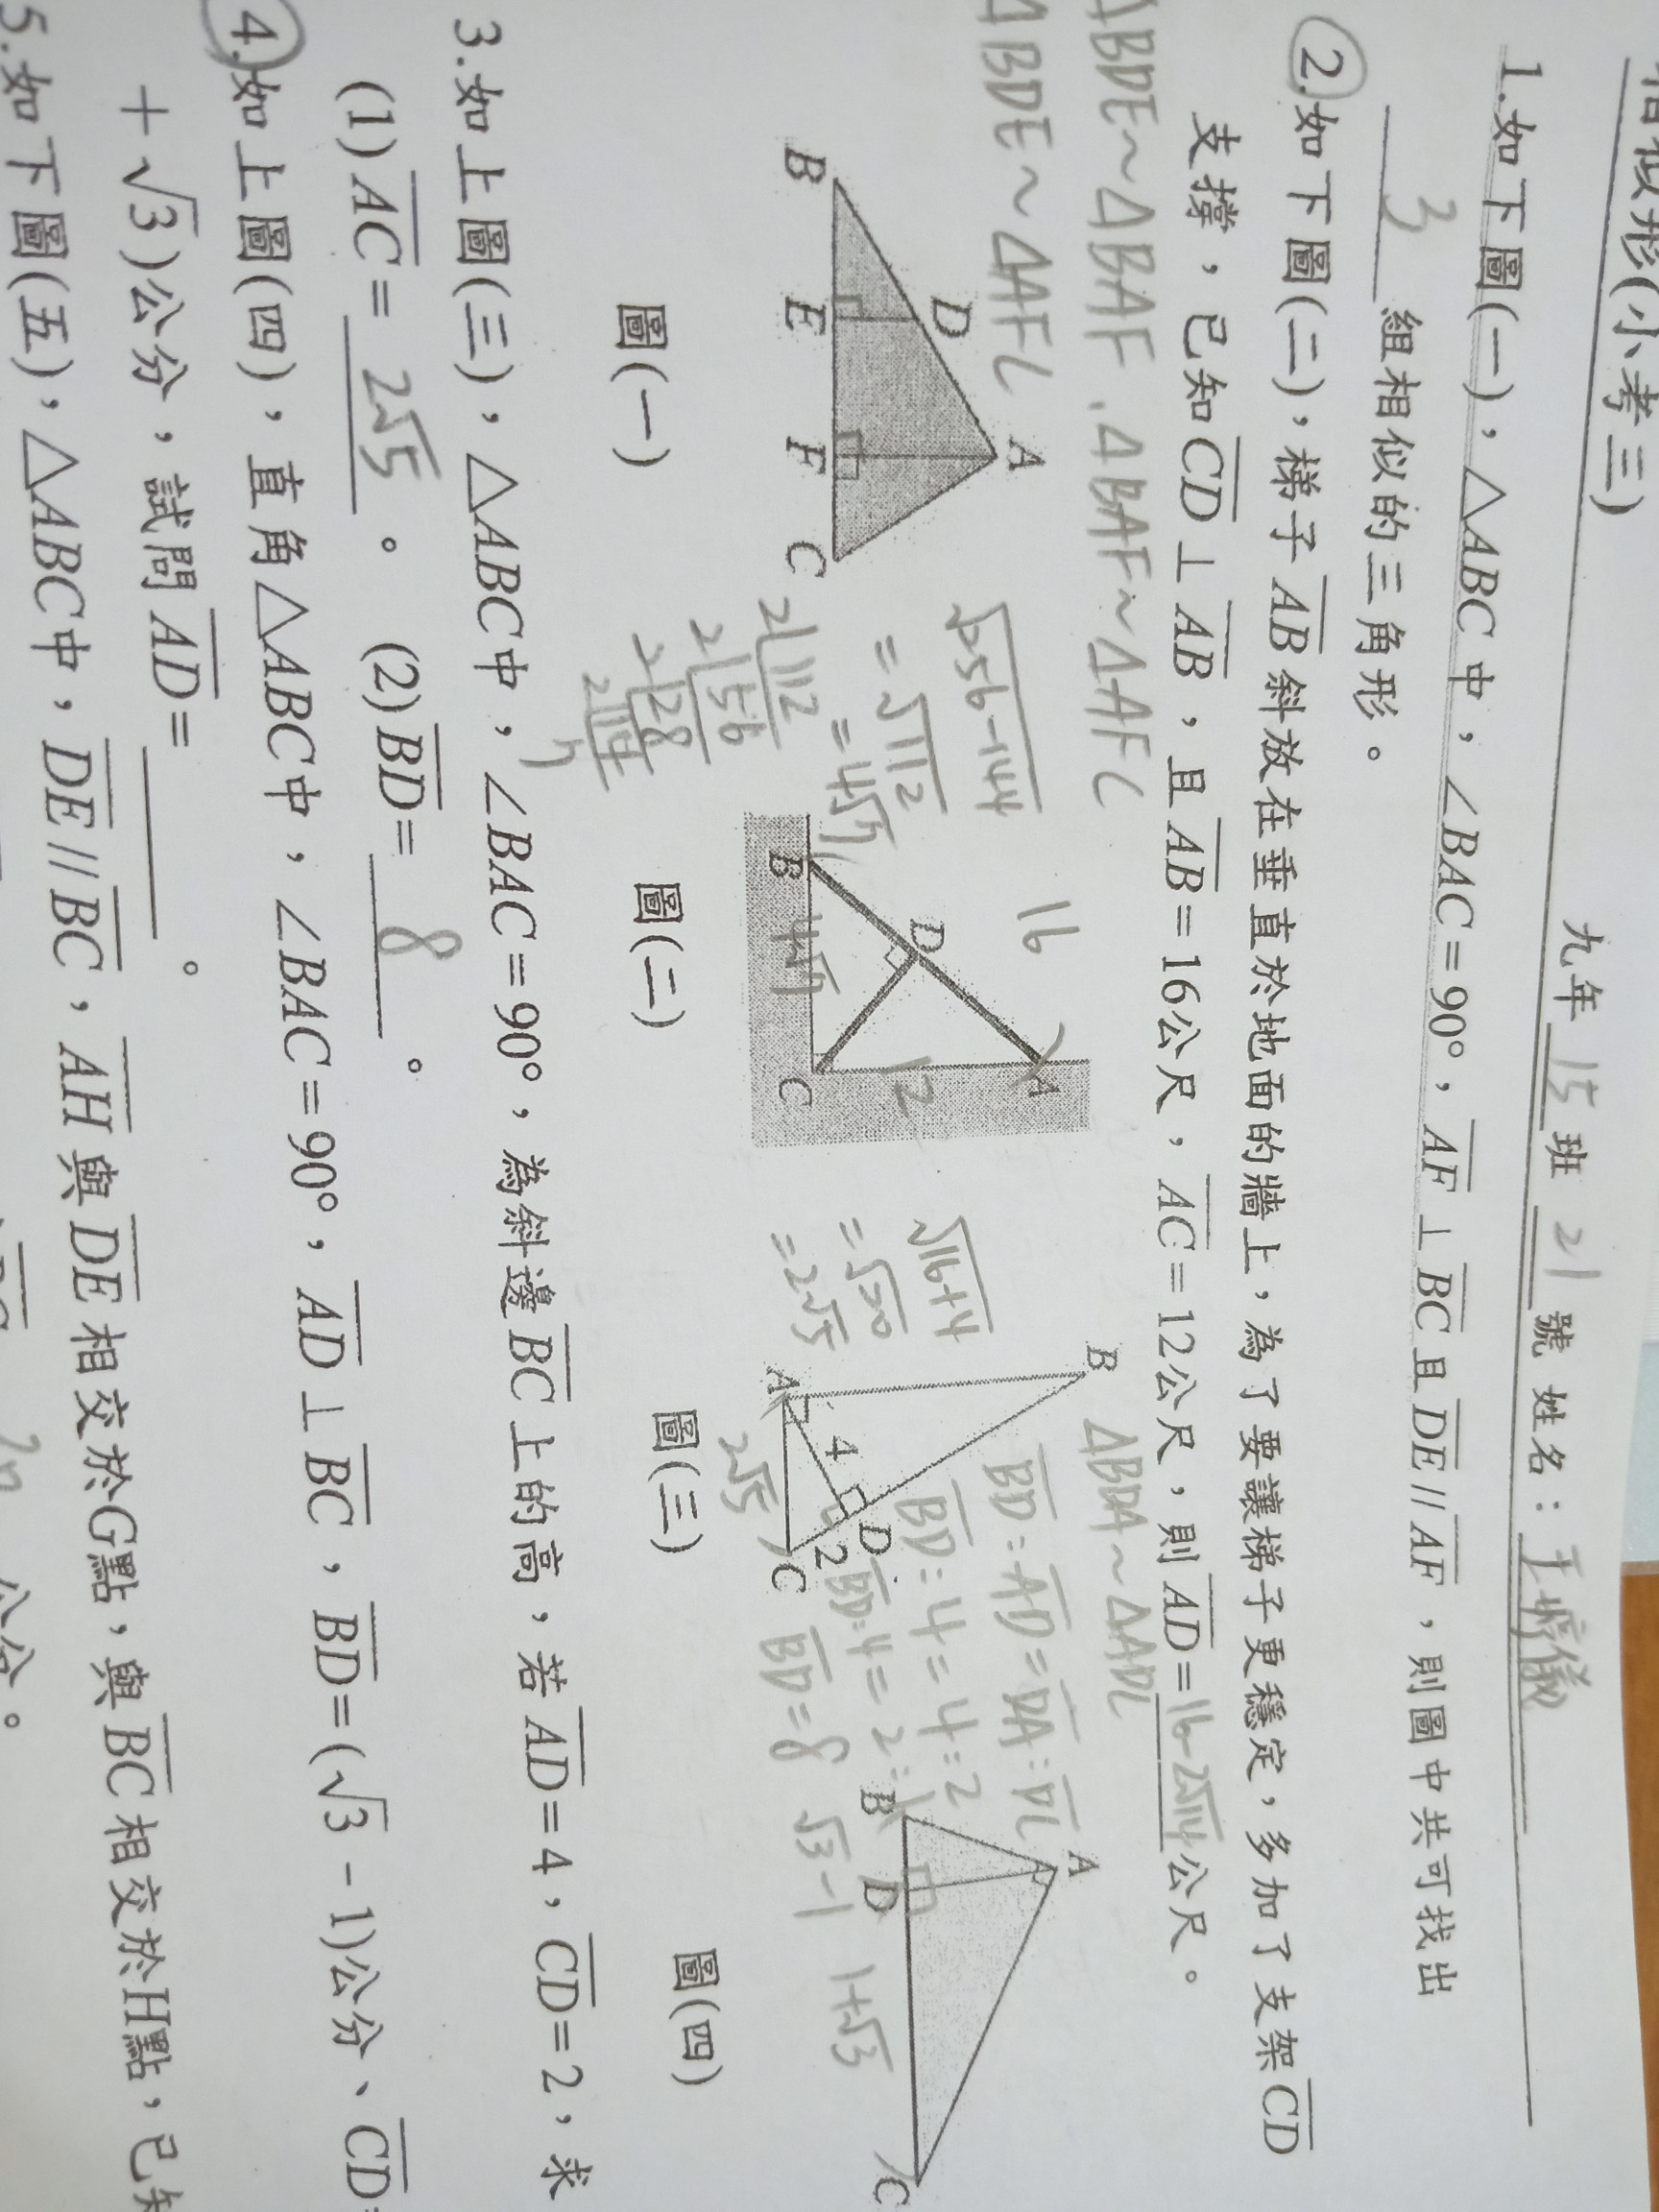 相似形(小考三)
九年 15 班 21 號 姓名:
1.如下圖(一),△ABC中,∠BAC=90°,AF⊥BC且DE//AF,則圖中共可找出
3 組相似的三角形。
2.如下圖(二),梯子AB斜放在垂直於地面的牆上,為了要讓梯子更穩定,多加了支架CD
支撐,已知CD⊥AB,且AB=16公尺,AC=12公尺,則AD=16-2√14公尺。
△BDE~△BAF,△BAF~△AFC
△BDE~△AFC
B E F C D A
√256-144
=√112
=4√7
2|112
2|56
2|28
2|14
7
16
B D A C
4√7
12
√16+4
=√20
=2√5
B A D C
4 2
2√5
△BDA~△ADC
BD:AD=DA:DC
BD:4=4:2
BD:4=2:1
BD=8
B D A C
√3-1
1+√3
圖(一) 圖(二) 圖(三) 圖(四)
3.如上圖(三),△ABC中,∠BAC=90°,為斜邊BC上的高,若AD=4,CD=2,求
(1)AC=2√5。 (2)BD=8。
4.如上圖(四),直角△ABC中,∠BAC=90°,AD⊥BC,BD=(√3-1)公分、CD=
+√3)公分,試問AD= 。
5.如下圖(五),△ABC中,DE//BC,AH與DE相交於G點,與BC相交於H點,已知
公分。